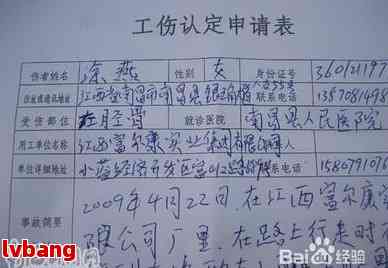 工伤认定申请表
伤者姓名 涂燕 性别 女 身份证号 360121197
住址或通讯地址 江西省南昌市南昌县银 联系电话 1357081498
受伤部位 左胫骨 就诊医院 南昌县人民医院
用工单位名称 江西富尔康实业集团有限公司
单位详细地址 小蓝经济开发区富山 路 联系电话 1580791016
事故简要 2009年4月22日,在江西富尔康实
限公司厂里,在路上行走时
lvbang
Bai 百度经验